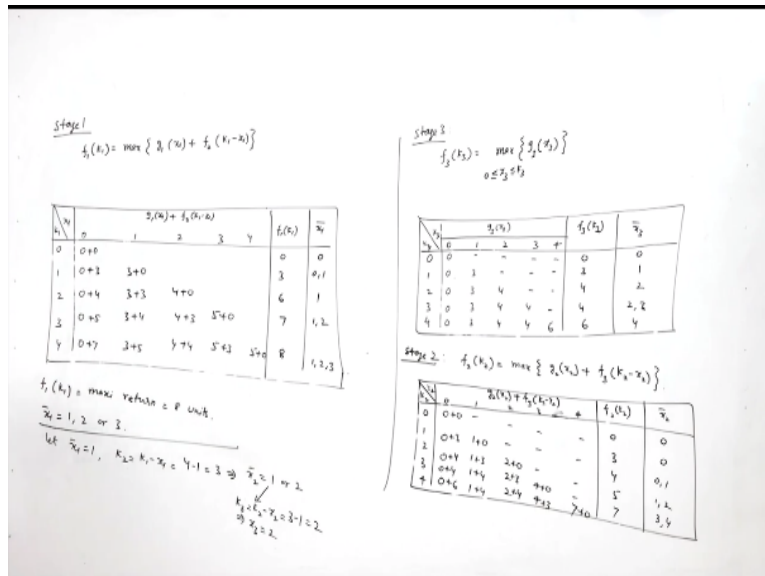 stage 1
f₁(k₁) = max { g₁(x₁) + f₂(k₁-x₁)}
x₁ g₁(x₁) + f₂(k₁-x₁) f₁(k₁) x̄₁
k₁ 0 1 2 3 4
0 0+0 0 0
1 0+3 3+0 3 0,1
2 0+4 3+3 4+0 6 1
3 0+5 3+4 4+3 5+0 7 1,2
4 0+7 3+5 4+4 5+3 5+0 8 1,2,3
f₁(k₁) = maxi return = 8 unit.
x̄₁ = 1, 2 or 3.
let x̄₁=1, k₂ = k₁-x₁ = 4-1 = 3 ⇒ x̄₂ = 1 or 2
k₃ = k₂-x₂ = 3-1 = 2
⇒ x̄₃ = 2
stage 3
f₃(k₃) = max { g₃(x₃)}
0≤x₃≤k₃
x₃ g₃(x₃) f₃(k₃) x̄₃
k₃ 0 1 2 3 4
0 0 - - - - 0 0
1 0 3 - - - 3 1
2 0 3 4 - - 4 2
3 0 3 4 4 - 4 2,3
4 0 3 4 4 6 6 4
stage 2: f₂(k₂) = max { g₂(x₂) + f₃(k₂-x₂)}
x₂ g₂(x₂) + f₃(k₂-x₂) f₂(k₂) x̄₂
k₂ 0 1 2 3 4
0 0+0 - - - - 0 0
1 0+3 1+0 - - - 3 0
2 0+4 1+3 2+0 - - 4 0,1
3 0+4 1+4 2+3 4+0 - 5 1,2
4 0+6 1+4 2+4 4+3 7+0 7 3,4